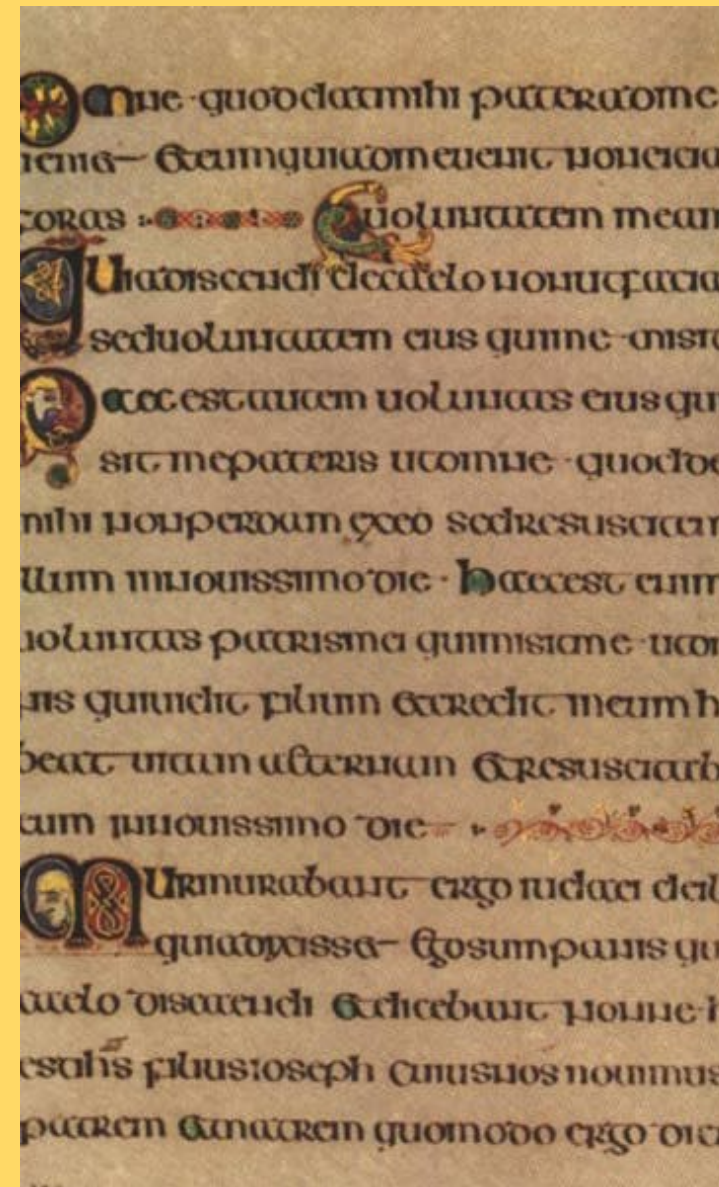 Omne · quod dat mihi pater ad me
ueniet Et eum qui ad me uenit non eicia
foras uoluntatem mean
Quia discendi de caelo non ut facia
sed uoluntatem eius qui me · misit
haec est autem uoluntas eius qui
sit me pateris ut omne · quod de
mihi non perdam ex eo sed resusciter
illum in nouissimo die · haec est enim
uoluntas patris mei qui misit me · ut om
nis qui uidit filium et credit in eum h
beat uitam aeternam Et resuscitab
eum in nouissimo die
Murmurabant ergo iudaei de il
quia dixisset Ego sum panis qu
caelo discendi Et dicebant nonne · h
est ihs filius ioseph cuius nos nouimus
patrem Et matrem quomodo ergo dici